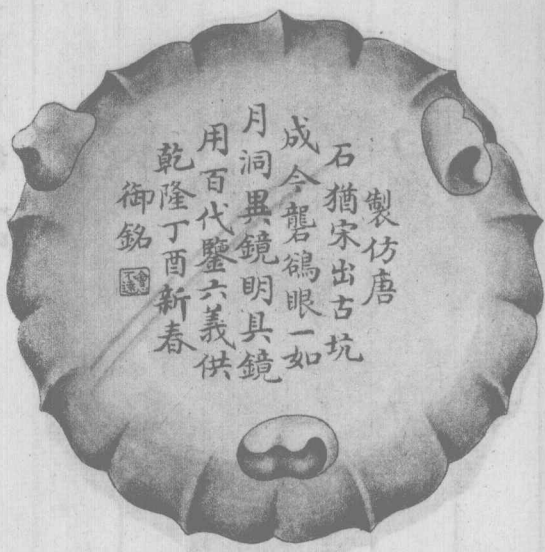 製仿唐
石猶宋出古坑
成今礱鵒眼一如
月洞異鏡明具鏡
用百代鑒六義供
乾隆丁酉新春
御銘